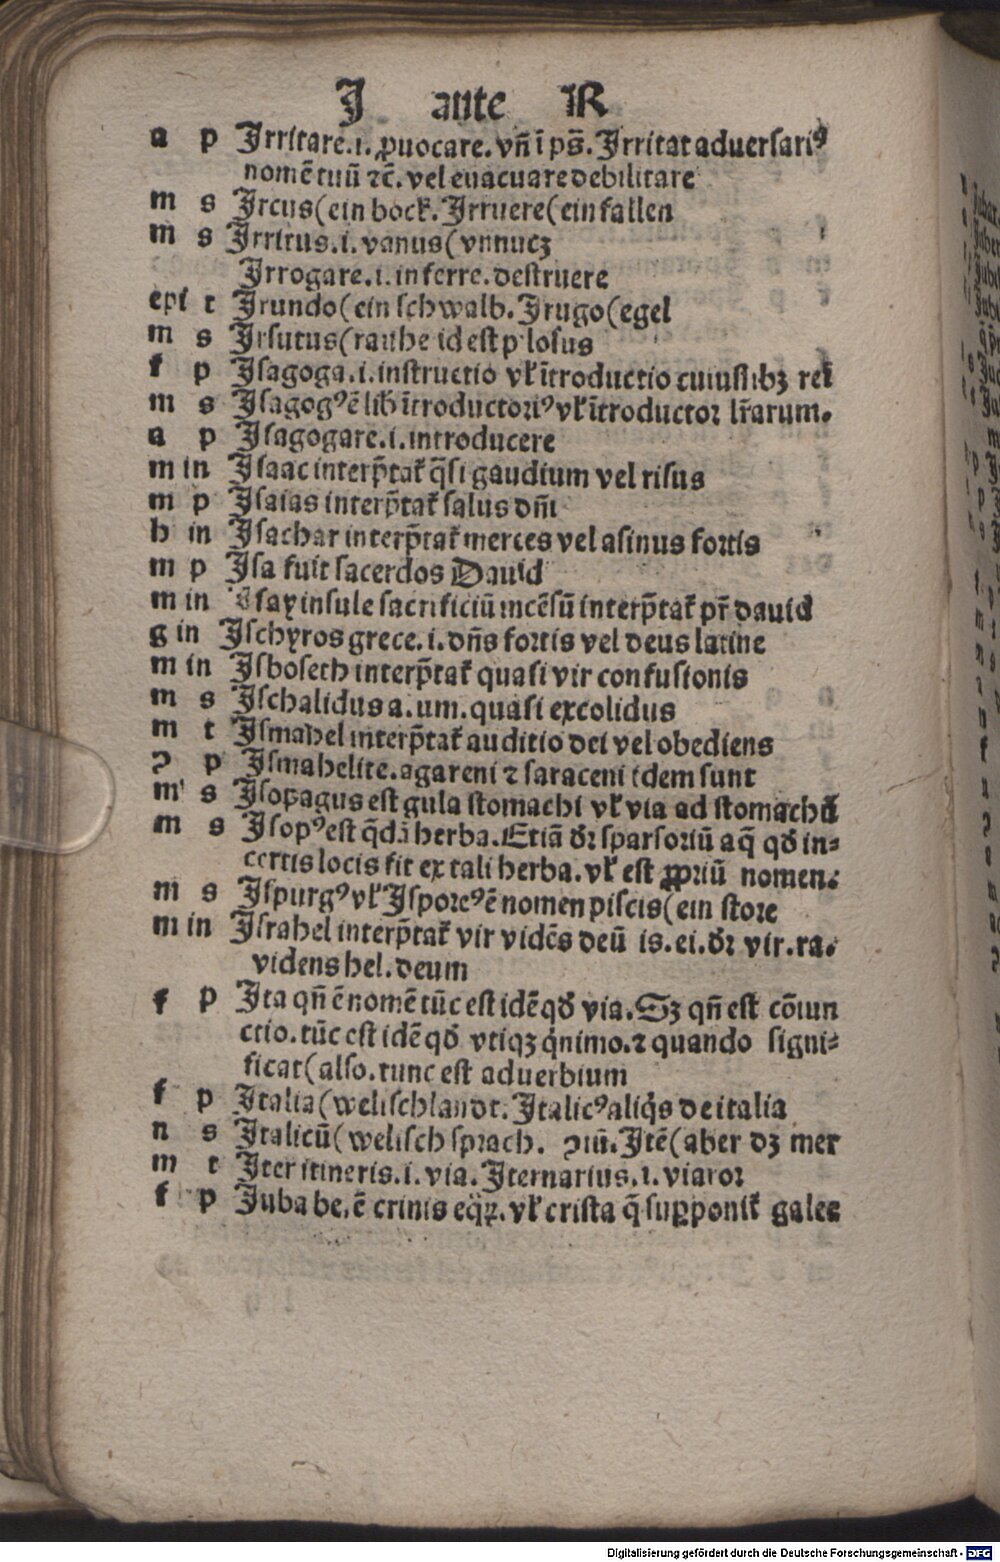 J ante R
a p Jrritare.i.ꝓuocare.vñ ī pṡ. Jrritat aduersariꝰ
nomē tuū ⁊č. vel euacuare debilitare
m s Jrcus(ein bock. Jrruere(ein fallen
m s Jrritus.i.vanus(vnnucz
Jrrogare.i.inferre.destruere
epi t Jrundo(ein schwalb. Jrugo(egel
m s Jrsutus(rauhe id est pilosus
f p Jsagoga.i.instructio vľ ītroductio cuiuslibꝫ rei
m s Jsagogꝰ ē lib ītroductoriꝰ vľ ītroductor lr̄arum.
a p Jsagogare.i.introducere
m in Jsaac interp̄tat̄ q̄si gaudium vel risus
m p Jsaias interp̄tat̄ salus dn̄i
h in Jsachar interp̄tat̄ merces vel asinus fortis
m p Jsa fuit sacerdos Dauid
m in Jsay insule sacrificiū incēsū interp̄tat̄ pr̄ dauid
g in Jschyros grece.i.dn̄s fortis vel deus latine
m in Jsboseth interp̄tat̄ quasi vir confusionis
m s Jschalidus a.um.quasi excolidus
m t Jsmahel interp̄tat̄ auditio dei vel obediens
ꝯ p Jsmahelite.agareni ⁊ saraceni idem sunt
m s Jsopagus est gula stomachi vľ via ad stomachū
m s Jsopꝰ est q̄dā herba.Etiā dr̄ sparsoriū aq̄ qď in=
certis locis fit ex tali herba.vľ est ꝓpriū nomen.
m s Jspurgꝰ vľ Jsporeꝰ ē nomen piscis(ein store
m in Jsrahel interp̄tat̄ vir vidēs deū is.ei.dr̄ vir.ra.
videns hel.deum
f p Jta qn̄ ē nomē tūc est idē qď via.Sꝫ qn̄ est cōiun
ctio.tūc est idē qď vtiqꝫ q̇nimo.⁊ quando signi=
ficat(also.tunc est aduerbium
f p Jtalia(welischlandt. Jtalicꝰ aliq̇s de italia
n s Jtalicū(welisch sprach. ꝯiū. Jtē(aber dꝫ mer
m t Jter itineris.i.via.Jternarius.i.viator
f p Juba be.ē crinis eq̄ꝝ.vľ crista q̄ supponit̄ galee
Digitalisierung gefördert durch die Deutsche Forschungsgemeinschaft - DFG